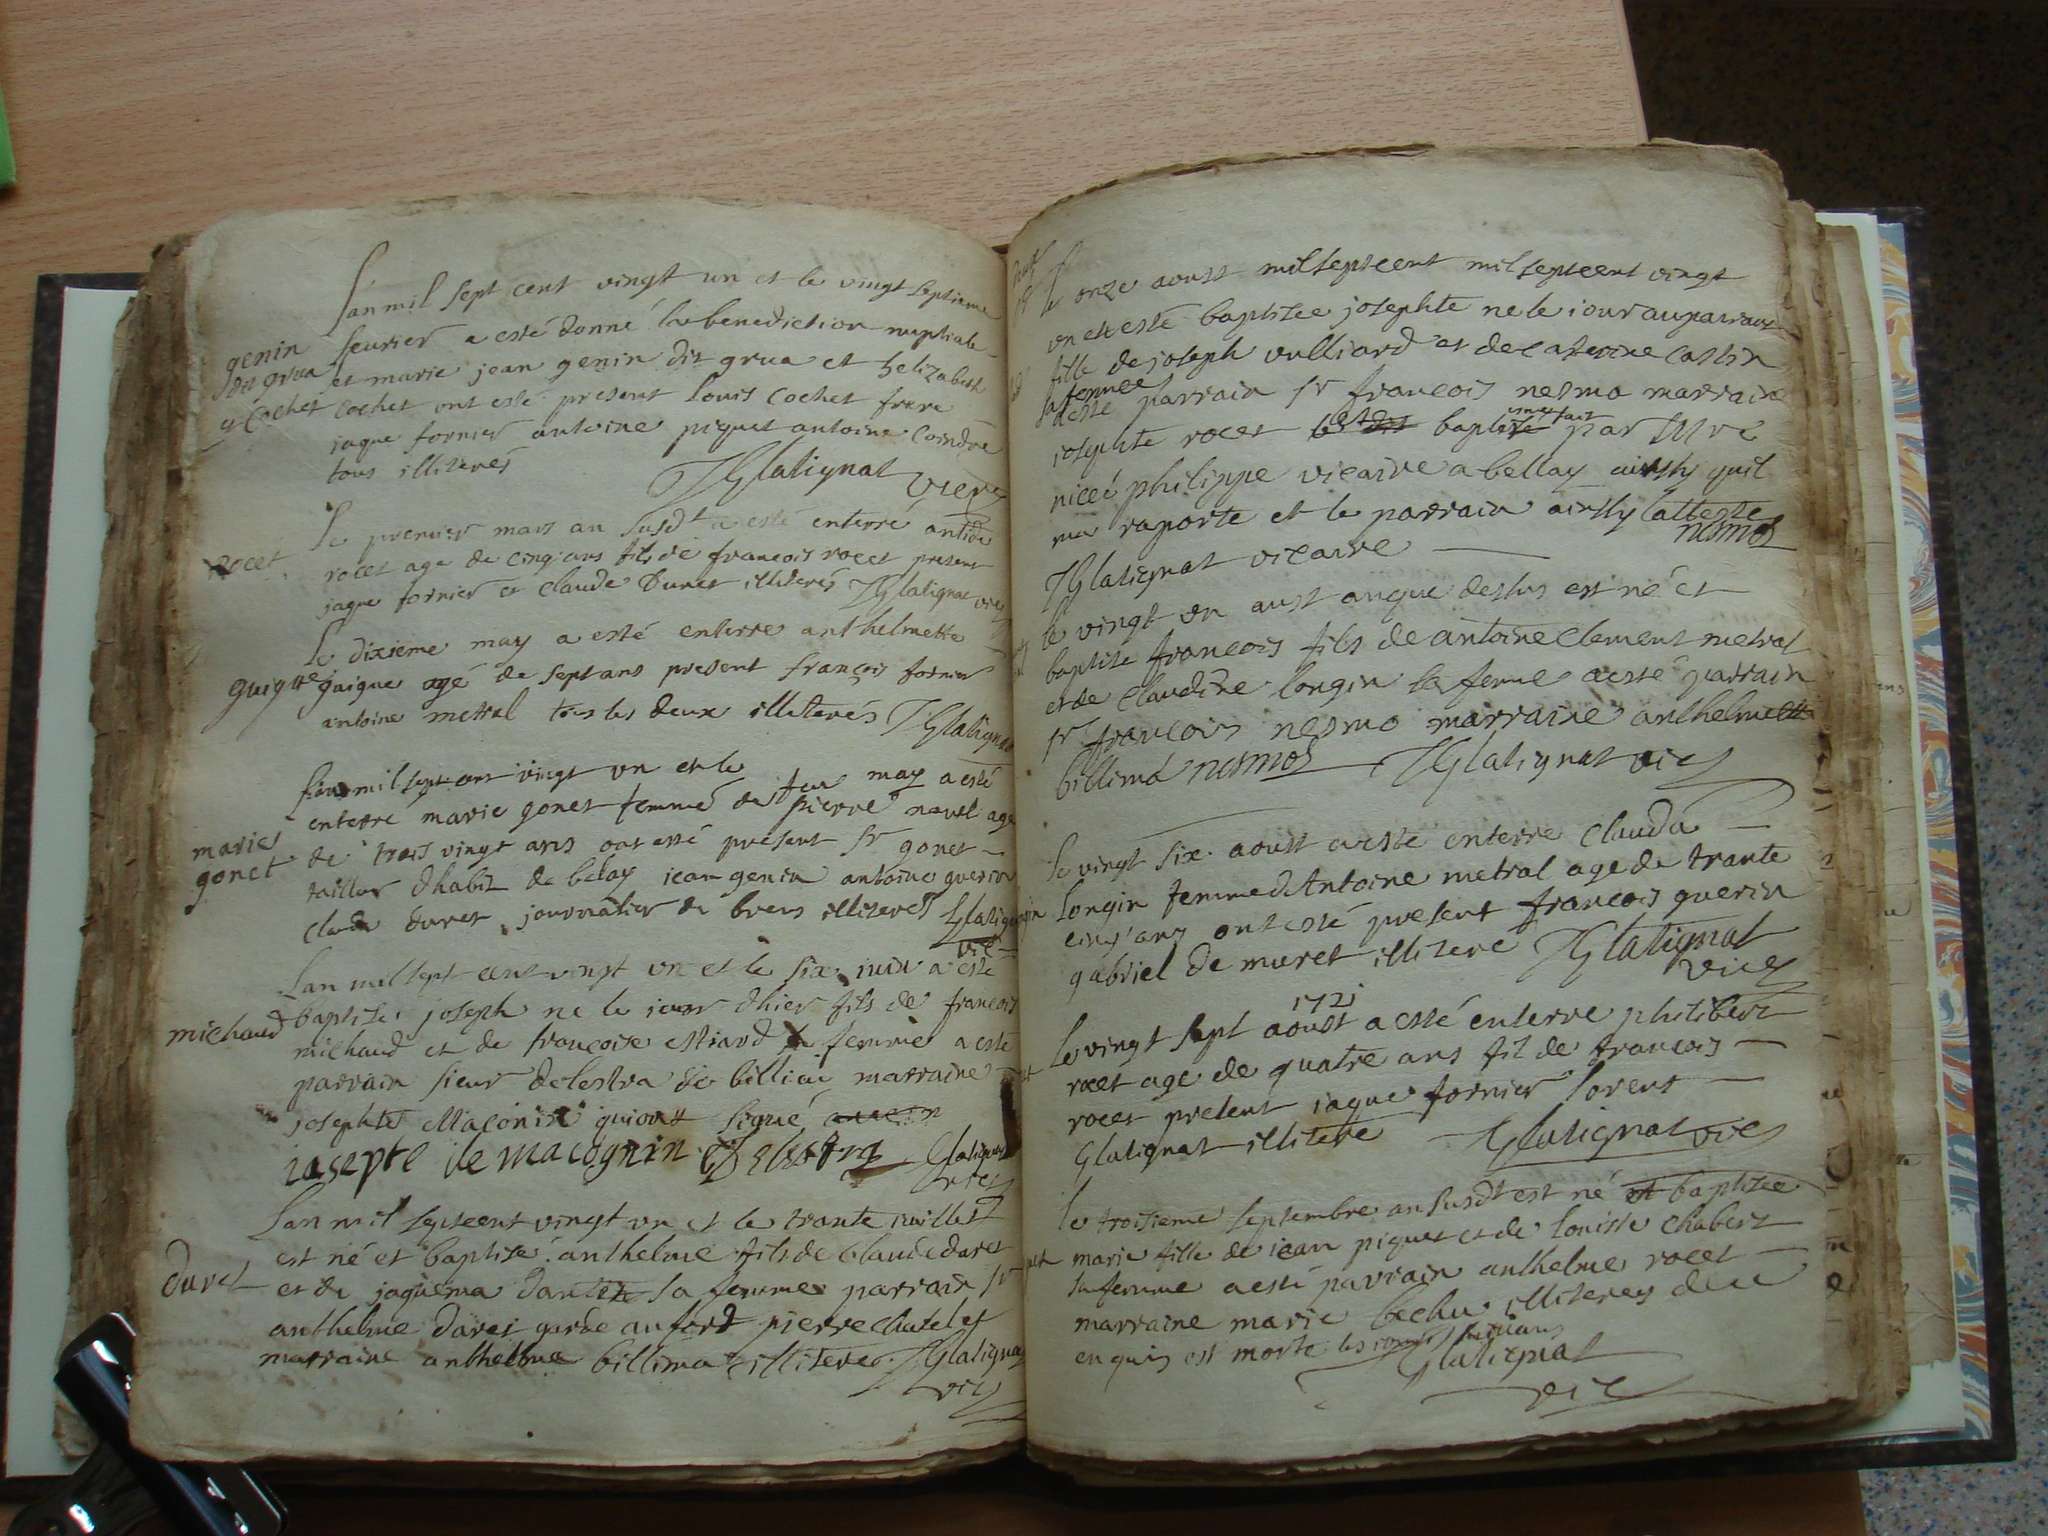 Lan mil sept cent vingt un et le vingt septieme
genin
feurier a esté donné la benediction nuptiale
dit grua
et marie jean genin dit grua et helizabeth
& Cochet
Cochet ont esté present Louis Cochet frere
jaque fornier antoine piquet antoine Coindre
tous illiterés
JGlatignat vicre
Le premier mars an susdt a esté enterré antide
rocet
rocet age de cinq ans fils de francois rocet present
jaque fornier et Claude Duret illiterés JGlatignat vic
Le dixieme may a esté enterre anthelmette
guigue
guigue agé de sept ans present françois fornier
antoine metral tous les deux illiterés JGlatignat
Lan mil sept cent vingt un et le may a esté
enterré marie gonet femme de feu pierre age
marie
gonet
de trois vingt ans ont esté present sr gonet
tailleur dhabit de belay iean genin antoine guerin
Claude duret journalier de brens illiteres Glatignat
vic
Lan mil sept cent vingt un et le six iuin a esté
baptise joseph ne le iour dhier fils de francois
michaud
michaud et de francoise sa femme a esté
parrain sieur delestra de billieu marraine
josephte Maconin signé
iosepte de macognin Delestra Glatignat
vic
Lan mil septcent vingt un et le trante iuillet
est né et baptisé anthelme fils de Claude duret
duret
et de jaquema sa femme parrain sr
anthelme duret garde au fort pierre chatel et
marraine anthelme billima illitere JGlatignat
vic
Le onze aoust mil septcent mil septcent vingt
un est esté baptisee josephte ne le iour auparrauant
fille de joseph vulliard et de Caterine Castin
sa femme
a esté parrain sr francois nesmo marraine
josephte rocet par Mre
philippe vicaire a bellay ainsy quil
ma raporte et le parrain ainsy latteste
nesmoz
JGlatignat vicaire
le vingt un aust anque dessus est né et
baptise francois fils de antoine Clement metral
et de Claudine longin sa feme a esté parrain
sr francois nesmo marraine anthelmette
billima nesmoz JGlatignat vic
Le vingt six aoust a esté enterre Clauda
Longin femme d Antoine metral age de trante
cinq ans ont esté present francois guerin
gabriel de muret illitere JGlatignat
vic
1721
Le vingt sept aoust a esté enterre philibert
rocet age de quatre ans fil de francois
rocet present iaque fornier lorent
Glatignat illitere JGlatignat vic
Le troisieme septembre an susdt est né et baptisee
marie fille de iean piquet et de louisse Chabert
sa femme a esté parrain anthelme rocet
marraine marie bochu illiteres
est morte
Glatignat
vic